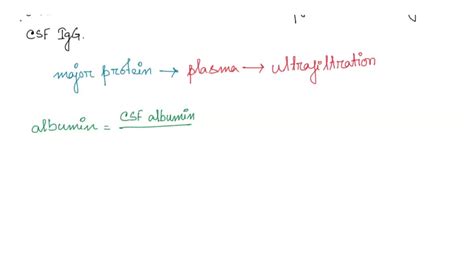 CSF IgG.
major protein → plasma → ultrafiltration
albumin = CSF albumin